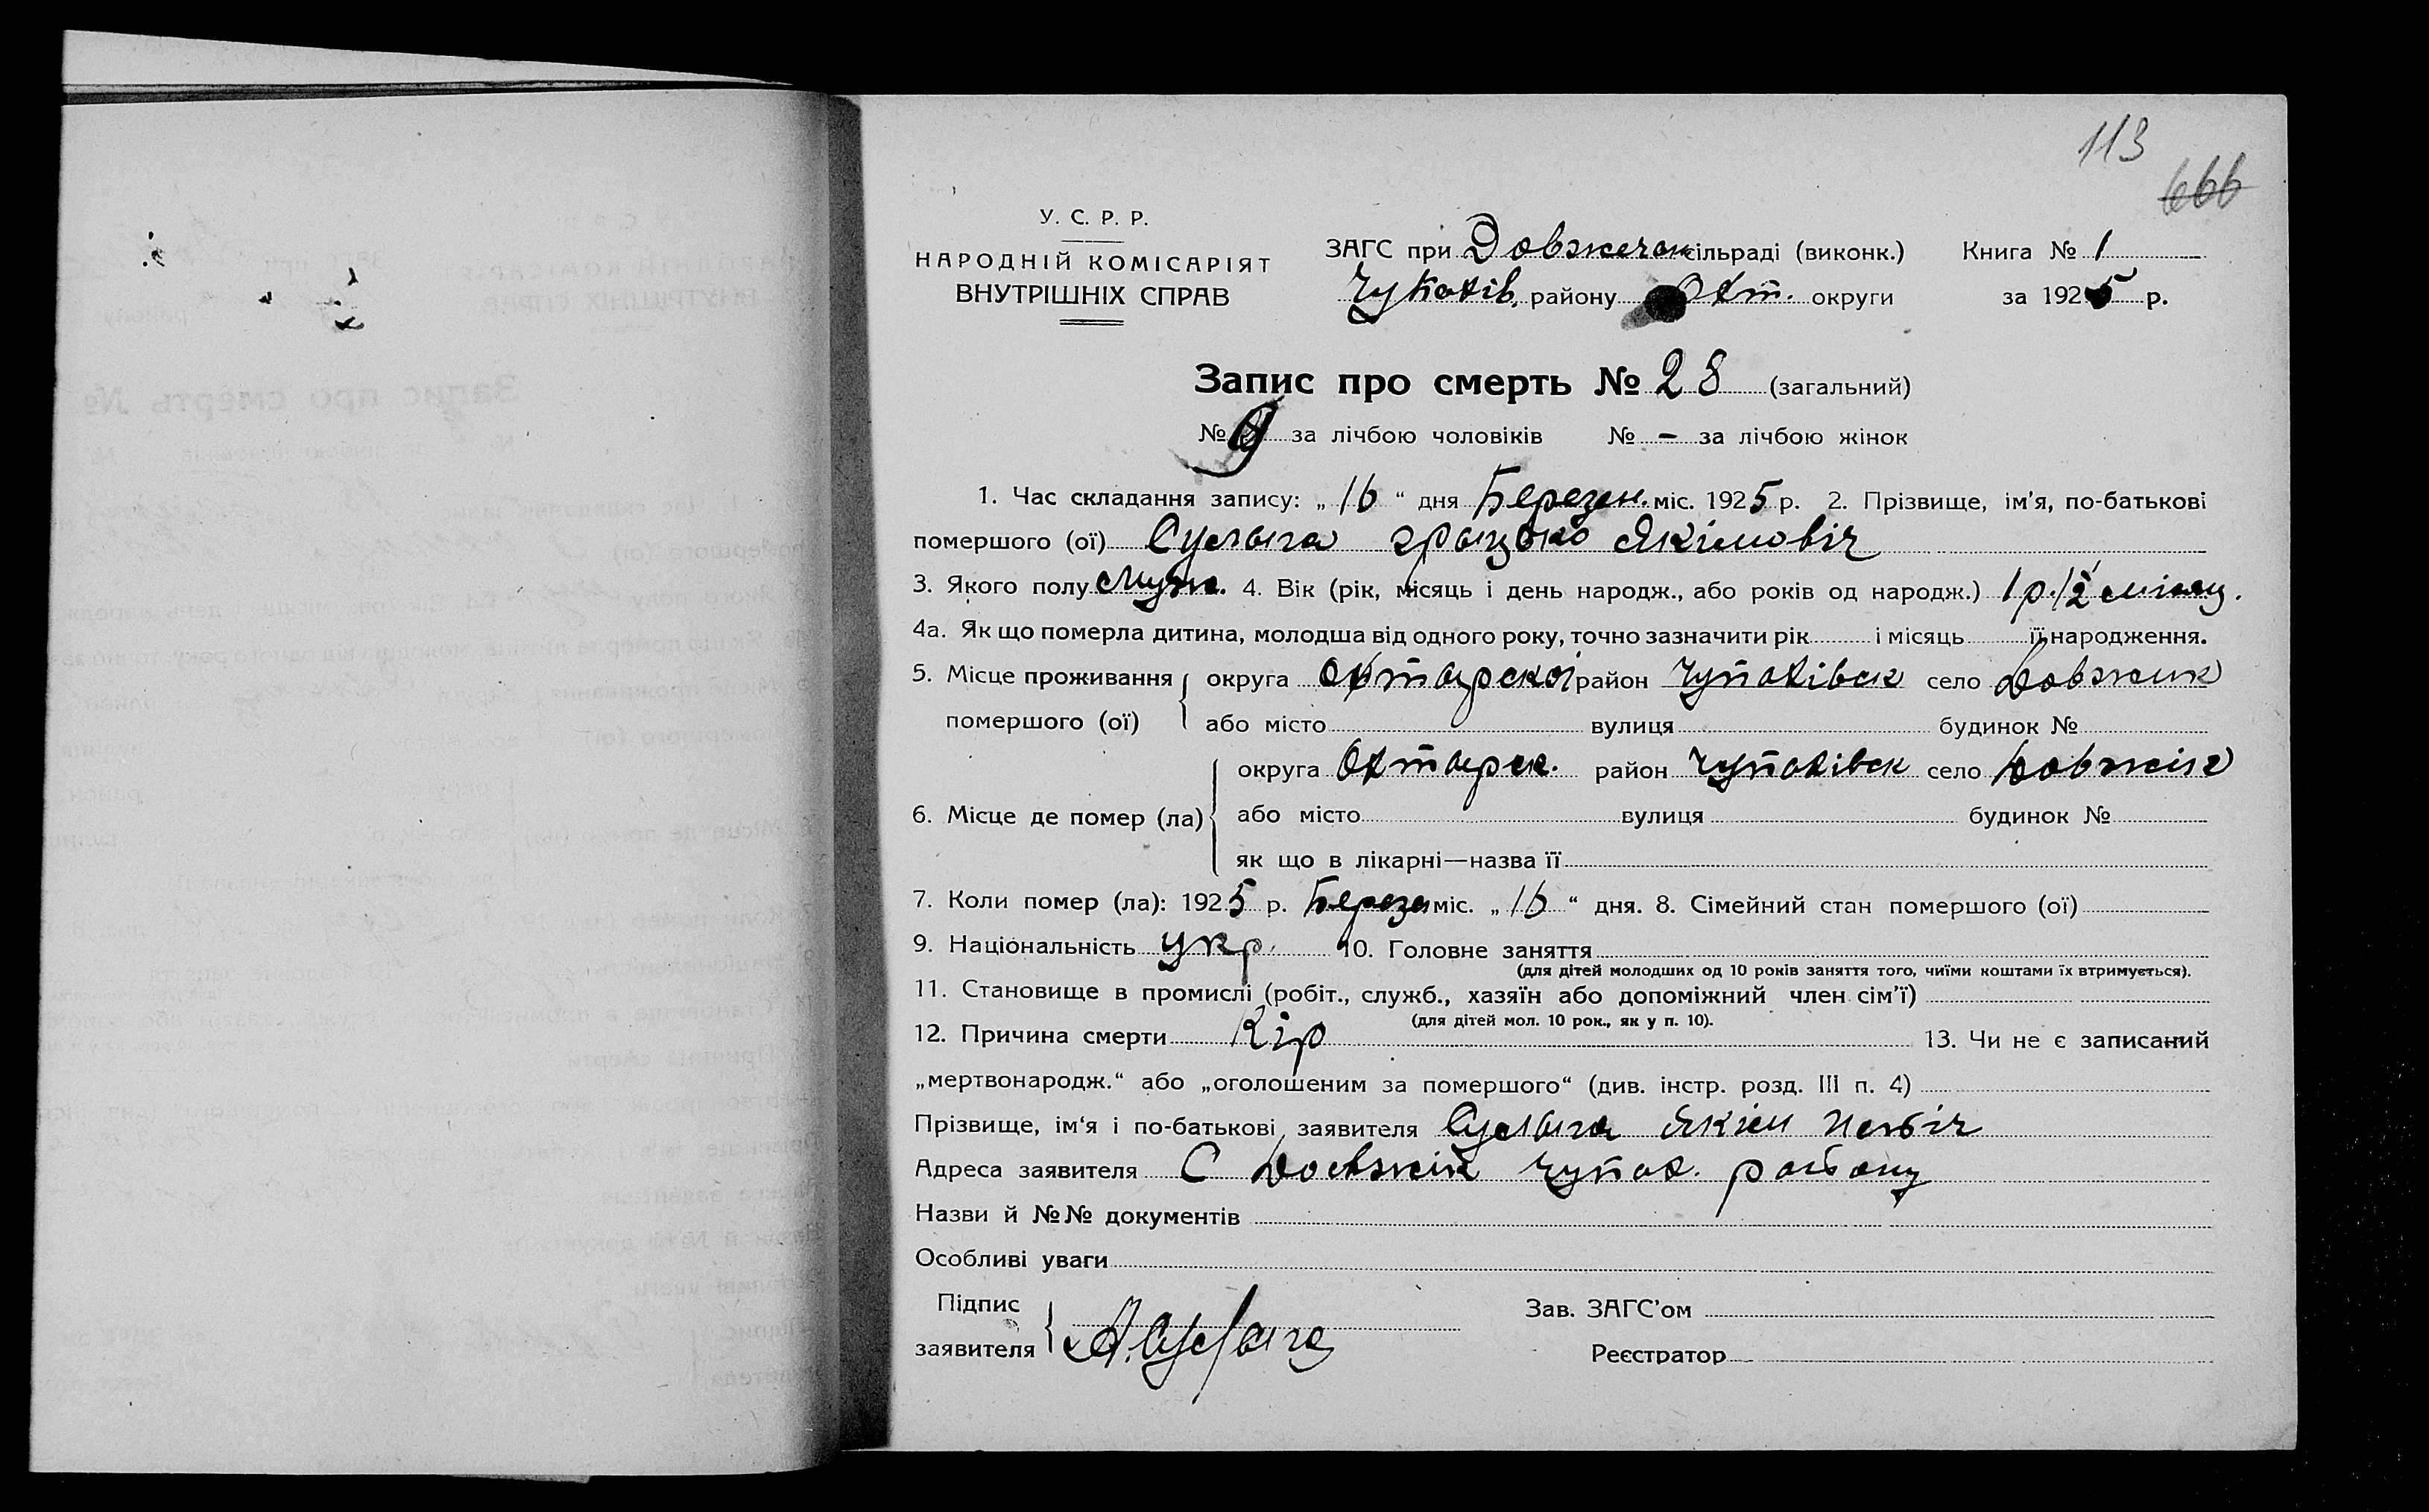 113
666
У. С. Р. Р.
НАРОДНІЙ КОМІСАРІЯТ
ВНУТРІШНІХ СПРАВ
ЗАГС при Довжечан сільраді (виконк.) Книга № 1
Чупахів. району Охт. округи за 1925 р.
Запис про смерть № 28 (загальний)
№ 9 за лічбою чоловіків № – за лічбою жінок
1. Час складання запису: „ 16 “ дня Березен. міс. 1925 р. 2. Прізвище, ім'я, по-батькові
помершого (ої) грицько Якімовіч
3. Якого полу Муж. 4. Вік (рік, місяць і день народж., або років од народж.) 1 р. 1/2 місяц.
4а. Як що померла дитина, молодша від одного року, точно зазначити рік і місяць її народження.
5. Місце проживання округа Охтырскоі район Чупахівск село Довжик
помершого (ої) або місто вулиця будинок №
округа Охтырск. район Чупахівск село Довжік
6. Місце де помер (ла) або місто вулиця будинок №
як що в лікарні—назва її
7. Коли помер (ла): 1925 р. Березен міс. „ 16 “ дня. 8. Сімейний стан помершого (ої)
9. Національність укр. 10. Головне заняття
(для дітей молодших од 10 років заняття того, чиїми коштами їх втримується).
11. Становище в промислі (робіт., служб., хазяїн або допоміжний член сім'ї)
(для дітей мол. 10 рок., як у п. 10).
12. Причина смерти Кір 13. Чи не є записаний
„мертвонародж.“ або „оголошеним за помершого“ (див. інстр. розд. III п. 4)
Прізвище, ім'я і по-батькові заявителя Якім
Адреса заявителя С Довжік Чупах. району
Назви й №№ документів
Особливі уваги
Підпис
заявителя
Зав. ЗАГС'ом
Реєстратор